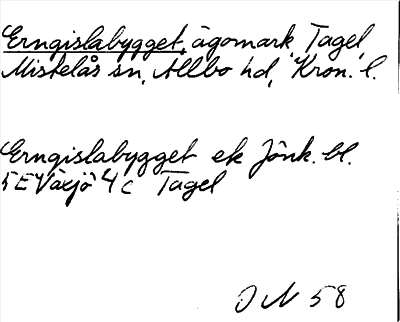 Erngislabygget, ägomark, Tagel,
Mistelås sn, Allbo hd, Kron. l.
Erngislabygget ek Jönk. bl.
5 E Växjö 4 c Tagel
J N 58